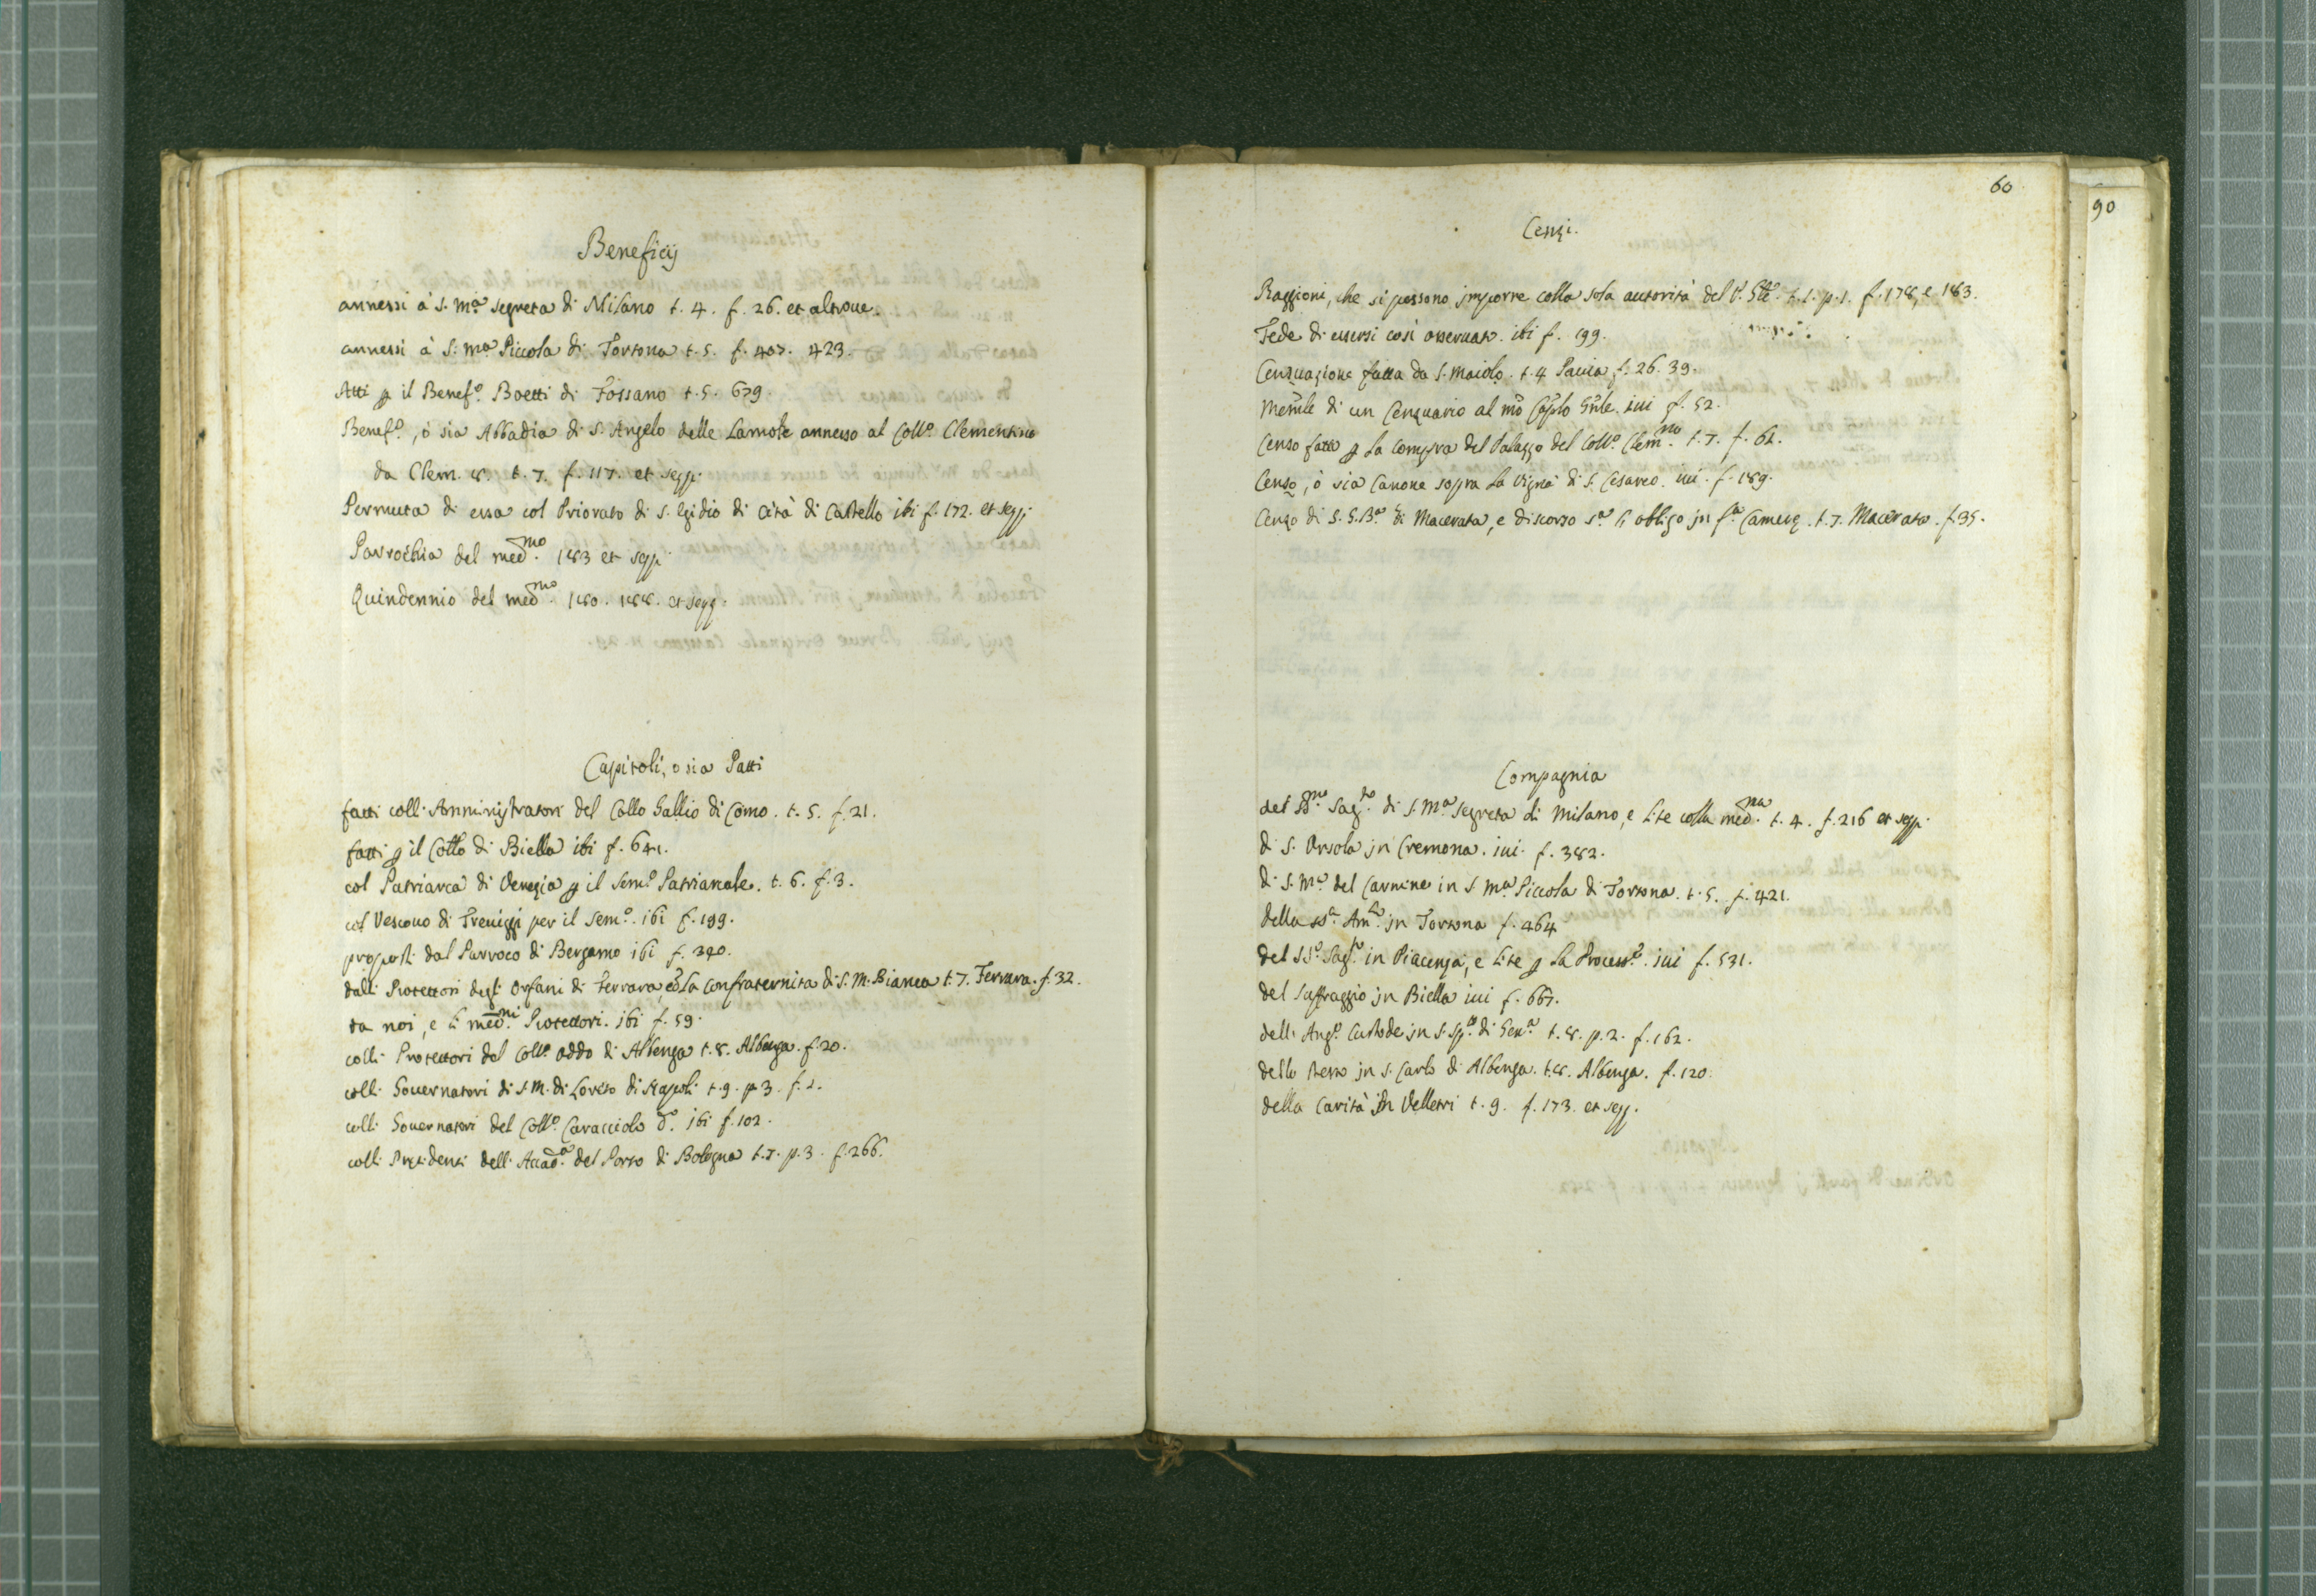 Beneficij
annessi à S. M.ª Segreta di Milano t. 4. f. 26. et altroue.
annessi à S. M.ª Piccola di Tortona t. 5. f. 407. 423.
Atti ꝑ il Benef.º Boetti di Fossano t. 5. 679.
Benef.º, ò sia Abbadia di S. Angelo delle Lamole annesso al Coll.º Clementino
da Clem. 8. t. 7. f. 117. et segg.
Permuta di essa col Priorato di S. Egidio di Cità di Castello ibi f. 172. et segg.
Parrochia del med.mo 183 et segg.
Quindennio del med.mo 180. 188. et segg.
Capitoli, o sia Patti
fatti colli Amministratori del Collo Gallio di Como. t. 5. f. 21.
fatti ꝑ il Collo di Biella ibi f. 641.
col Patriarca di Venezia ꝑ il Sem.º Patriarcale. t. 6. f. 3.
col Vescouo di Treuiggi per il Sem.º ibi f. 199.
proposti dal Parroco di Bergamo ibi f. 390.
dalli Protettori degli Orfani di Ferrara, e La Confraternita di S. M. Bianca t. 7. Ferrara. f. 32.
ta noi, e li med.mi Protettori. ibi f. 59.
colli Protettori del Coll.º Oddo di Albenga t. 8. Albenga. f. 20.
colli Gouernatori di S. M. di Loreto di Napoli t. 9. p. 3. f. 1.
colli Gouernatori del Coll.º Caracciolo d.º ibi f. 102.
colli Presidenti dell. Accad.ª del Porto di Bologna t. 7. p. 3. f. 266.
60
90
Cenzi.
Raggioni, che si possono jmporre colla sola autorità del t. 1. p. 1. f. 178, e 183.
Fede di essersi così osseruato. ibi f. 199.
Cenzuazione fatta da S. Maiolo. t. 4 Pauia f. 26. 39.
Memle di un Cenzuario al Caplo Gnle. iui f. 52.
Censo fatto ꝑ La compra del Palazzo del Coll.º Clem.no t. 7. f. 62.
Censo, ò sia Canone sopra La Vigna di S. Cesareo. iui. f. 189.
Cenzo di S. G. B.ª di Macerata, e discorso s.ª l'obligo jn f.ª Camerę. t. 7. Macerata. f. 35.
Compagnia
del SS.mo Sag.to di S. M.ª Segreta di Milano, e Lite colla med.ma t. 4. f. 216 et segg.
di S. Orsola jn Cremona. iui. f. 382.
di S. M.ª del Carmine in S. M.ª Piccola di Tortona. t. 5. f. 421.
della jn Tortona f. 464
del SS.º Sag.to in Piacenza, e Lite ꝑ La Process.e iui f. 531.
del Suffraggio jn Biella iui f. 667.
dell. Ang.º Custode jn S. Sp.to di Gen.ª t. 8. p. 2. f. 162.
dello stesso jn S. Carlo di Albenga. t. 8. Albenga. f. 120.
della Carità jn Velletri t. 9. f. 173. et segg.